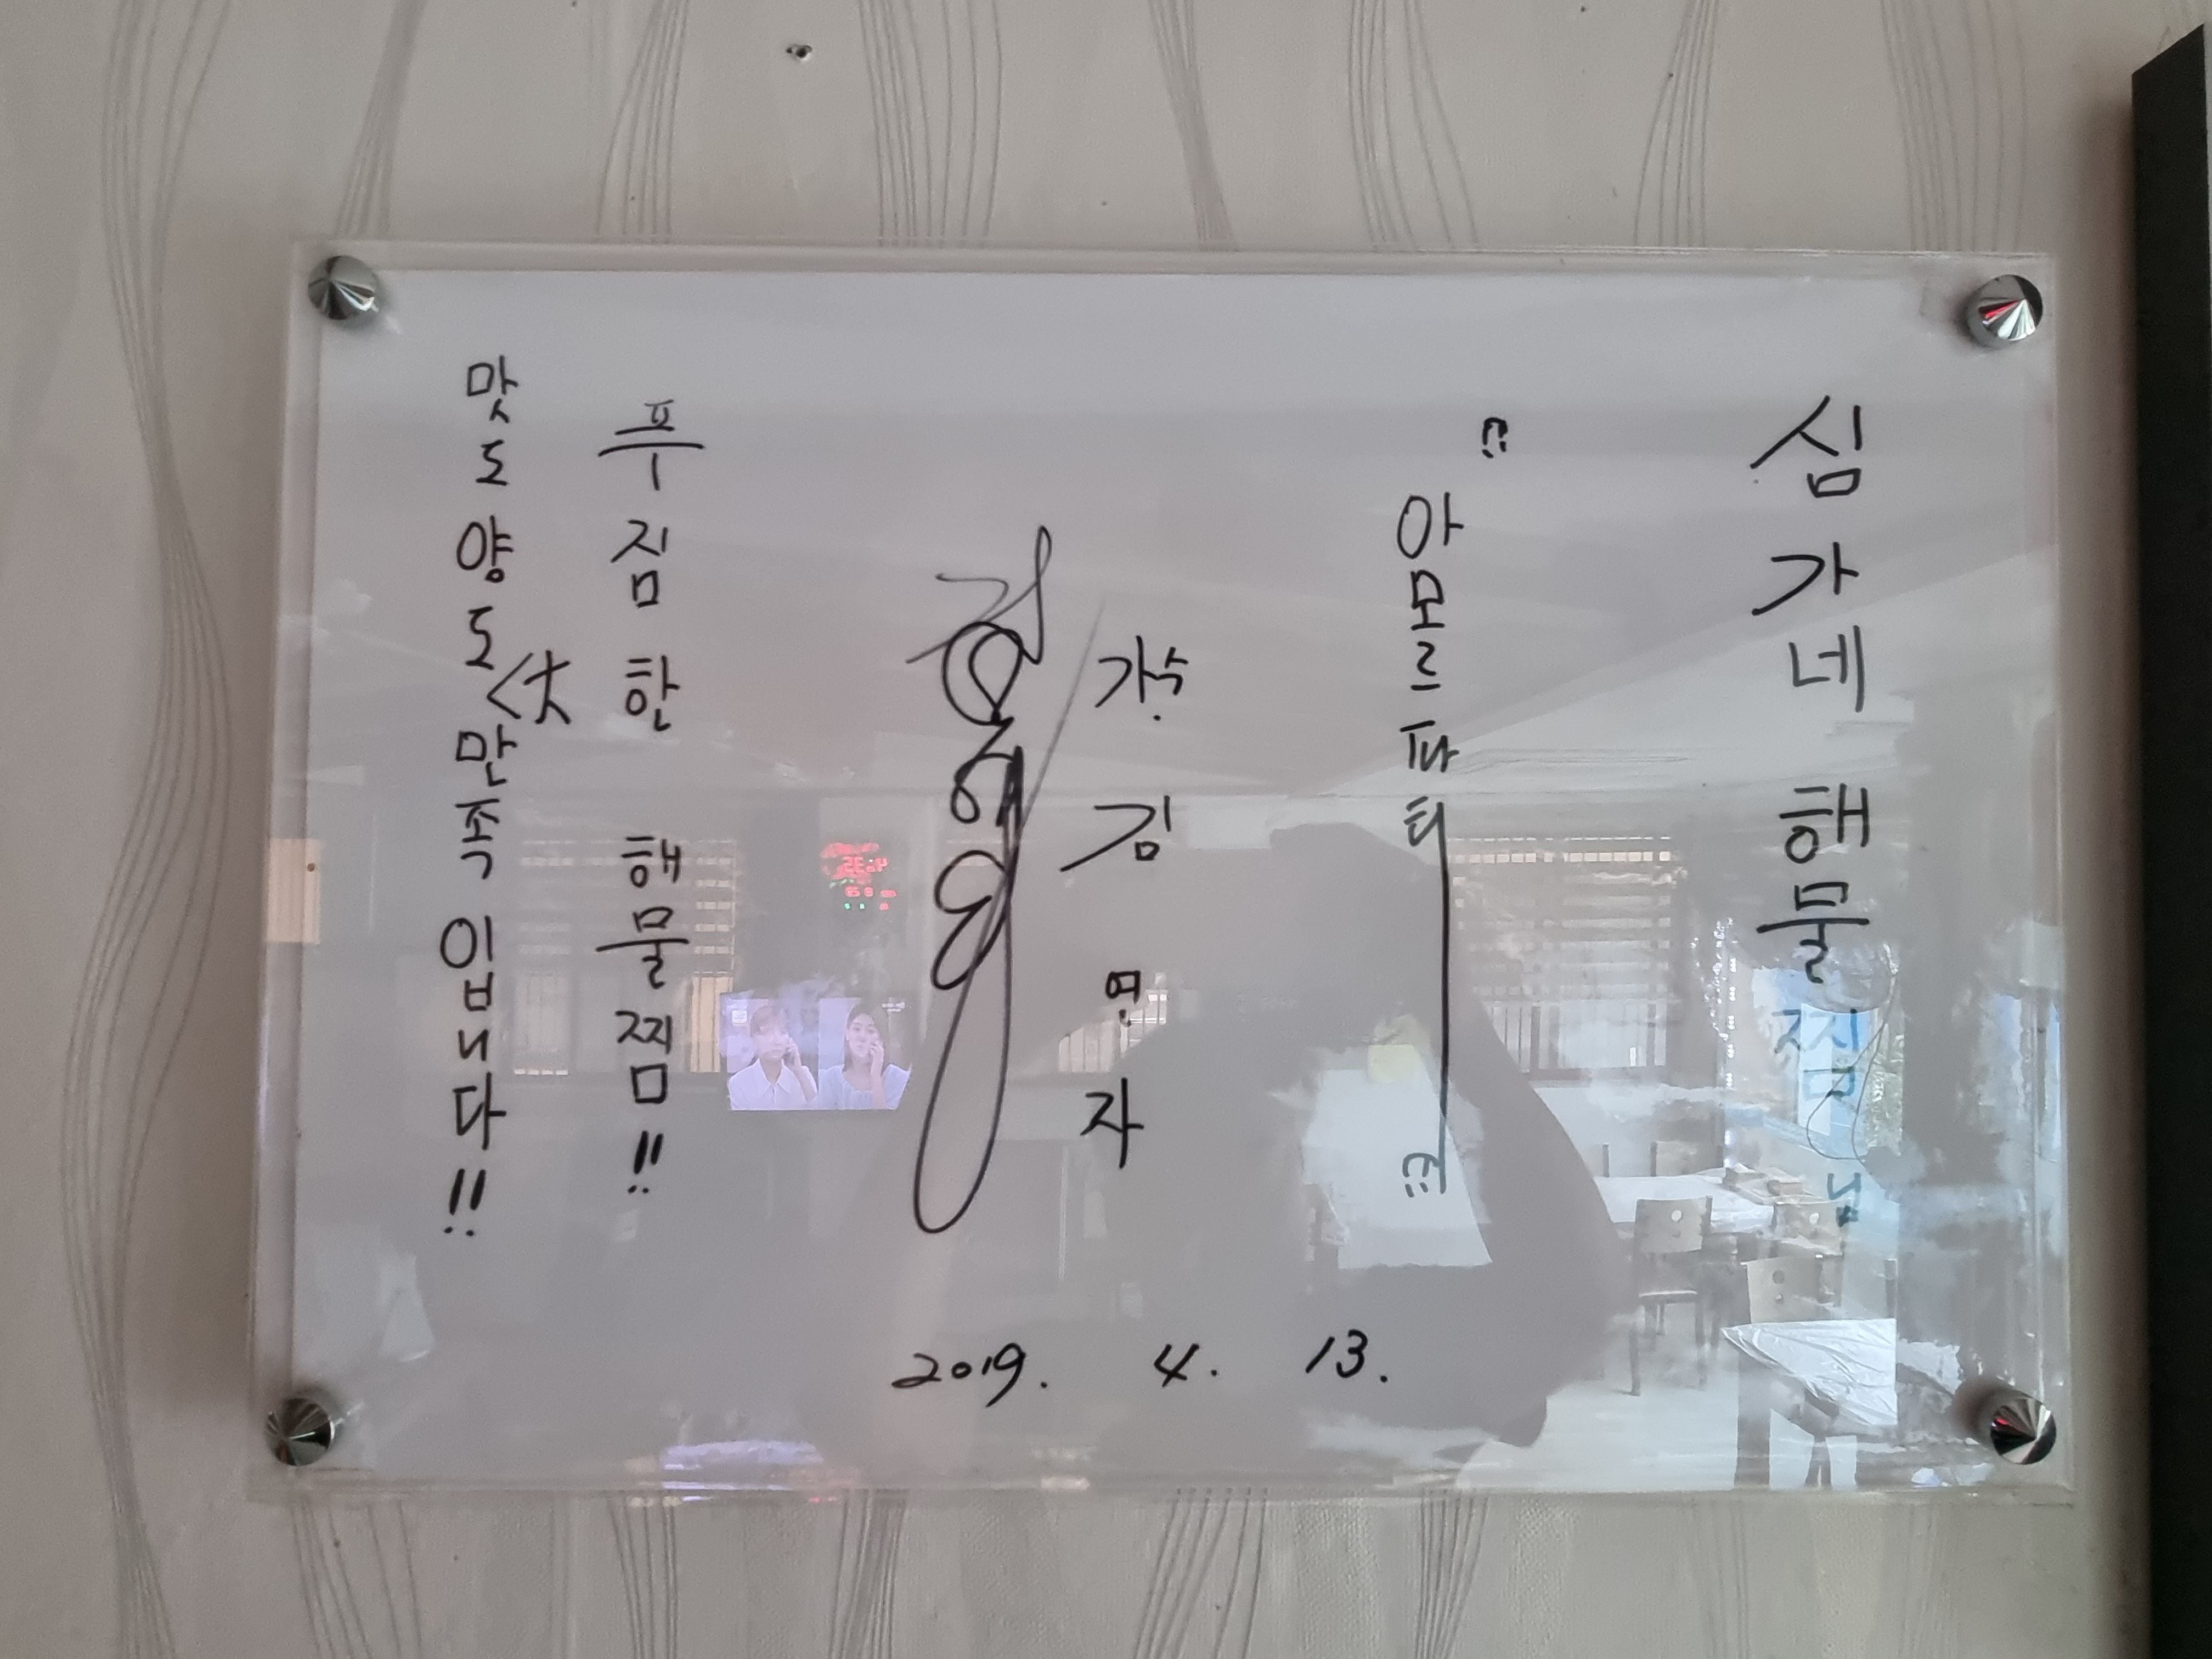 심가네 해물찜
" 아모르파티 "
가수 김연자
푸짐한 해물찜!!
맛도 양도 大만족입니다!!
2019. 4. 13.